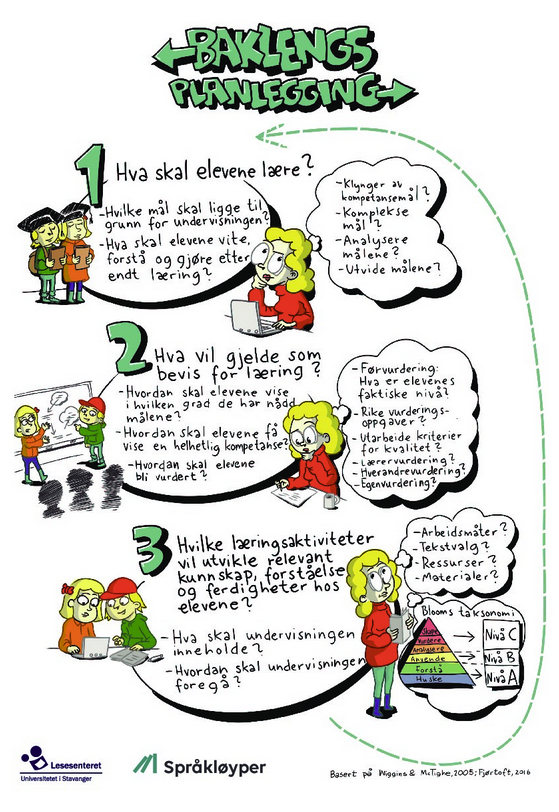 BAKLENGS
PLANLEGGING
1
Hva skal elevene lære?
-Hvilke mål skal ligge til
grunn for undervisningen?
-Hva skal elevene vite,
forstå og gjøre etter
endt læring?
-Klynger av
kompetansemål?
-Komplekse
mål?
-Analysere
målene?
-Utvide målene?
2
Hva vil gjelde som
bevis for læring?
-Hvordan skal elevene vise
i hvilken grad de har nådd
målene?
-Hvordan skal elevene få
vise en helhetlig kompetanse?
-Hvordan skal elevene
bli vurdert?
-Førvurdering:
Hva er elevenes
faktiske nivå?
-Rike vurderings-
oppgaver?
-Utarbeide kriterier
for kvalitet?
-Lærervurdering?
-Hverandrevurdering?
-Egenvurdering?
3
Hvilke læringsaktiviteter
vil utvikle relevant
kunnskap, forståelse
og ferdigheter hos
elevene?
-Hva skal undervisningen
inneholde?
-Hvordan skal undervisningen
foregå?
-Arbeidsmåter?
-Tekstvalg?
-Ressurser?
-Materialer?
Blooms taksonomi
Skape
Vurdere
Analysere
Anvende
Forstå
Huske
Nivå C
Nivå B
Nivå A
Lesesenteret
Universitetet i Stavanger
Språkløyper
Basert på Wiggins & McTighe, 2005; Fjørtoft, 2016